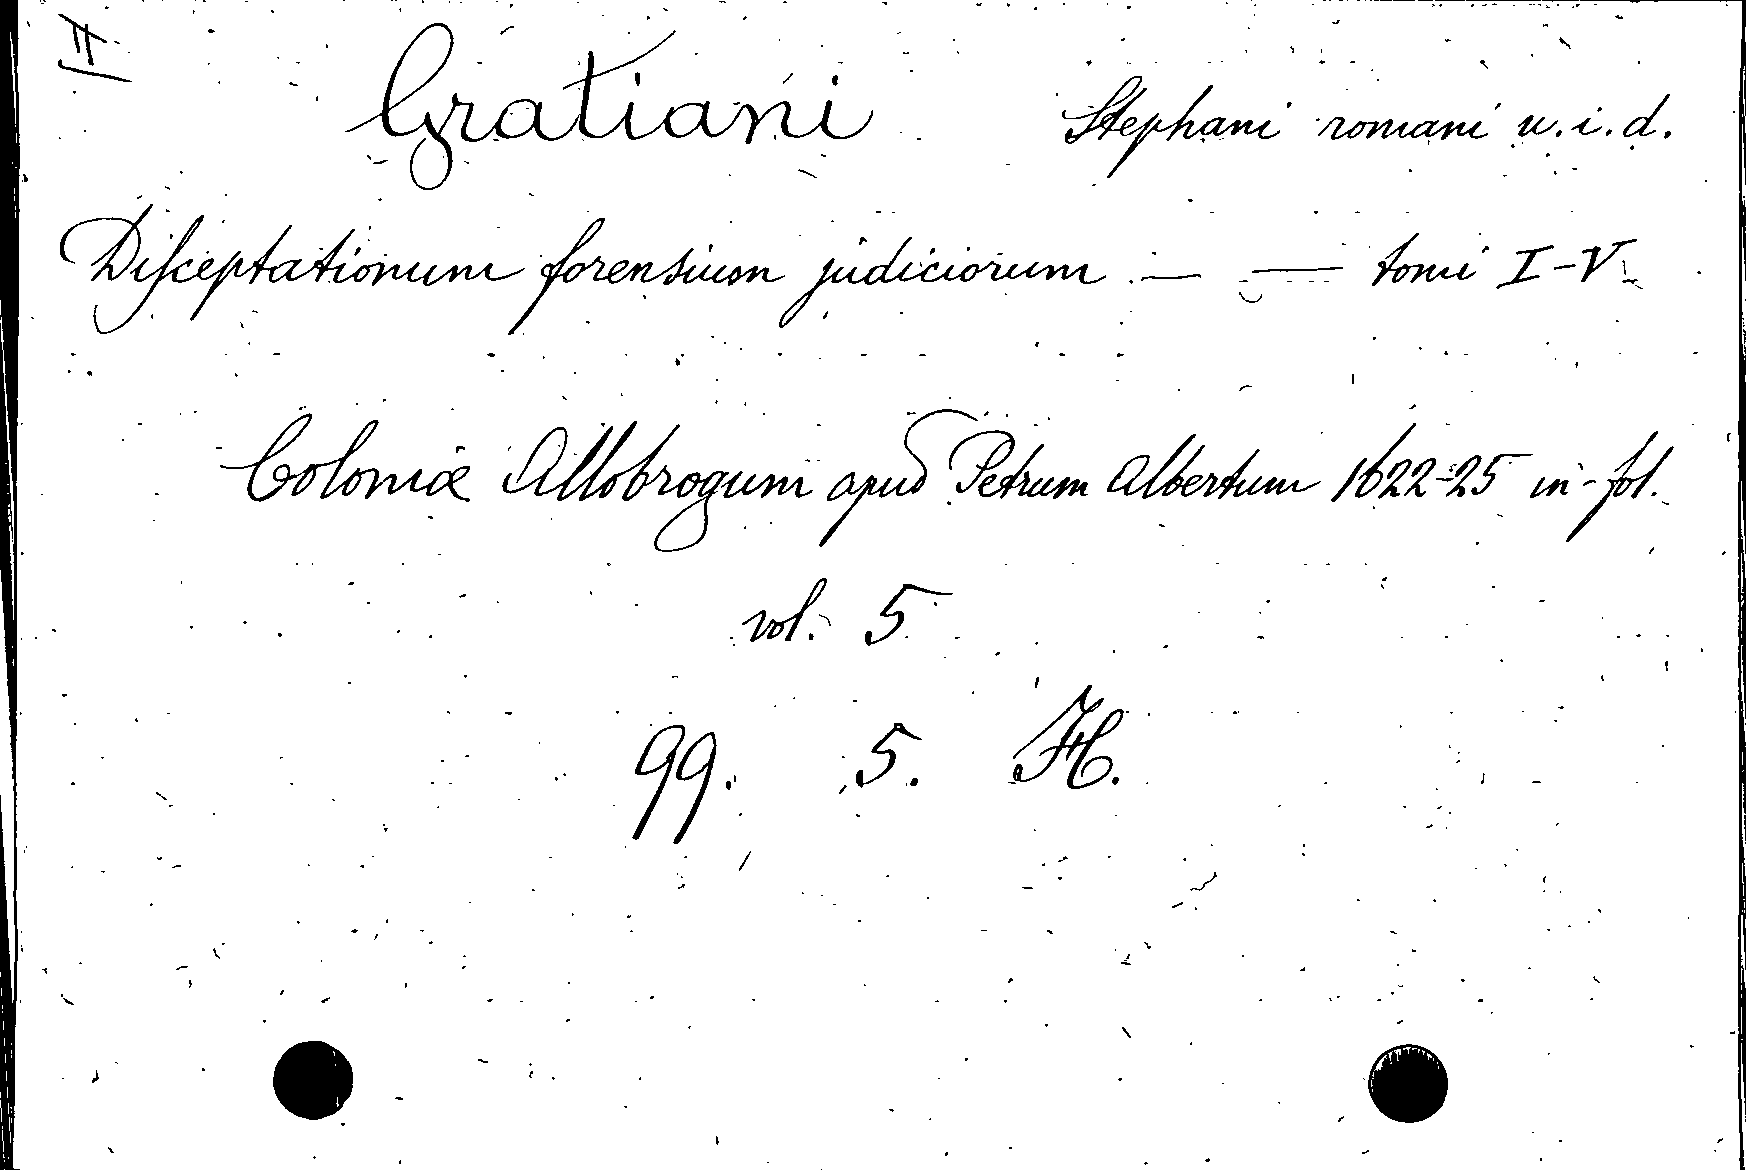 Gratiani Stephani romani u. i. d.
Diſceptationum forensium judiciorum — — tomi I-V
Coloniæ Allobrogum apud Petrum Albertum 1622-25 in-fol.
vol. 5
99. 5. H.